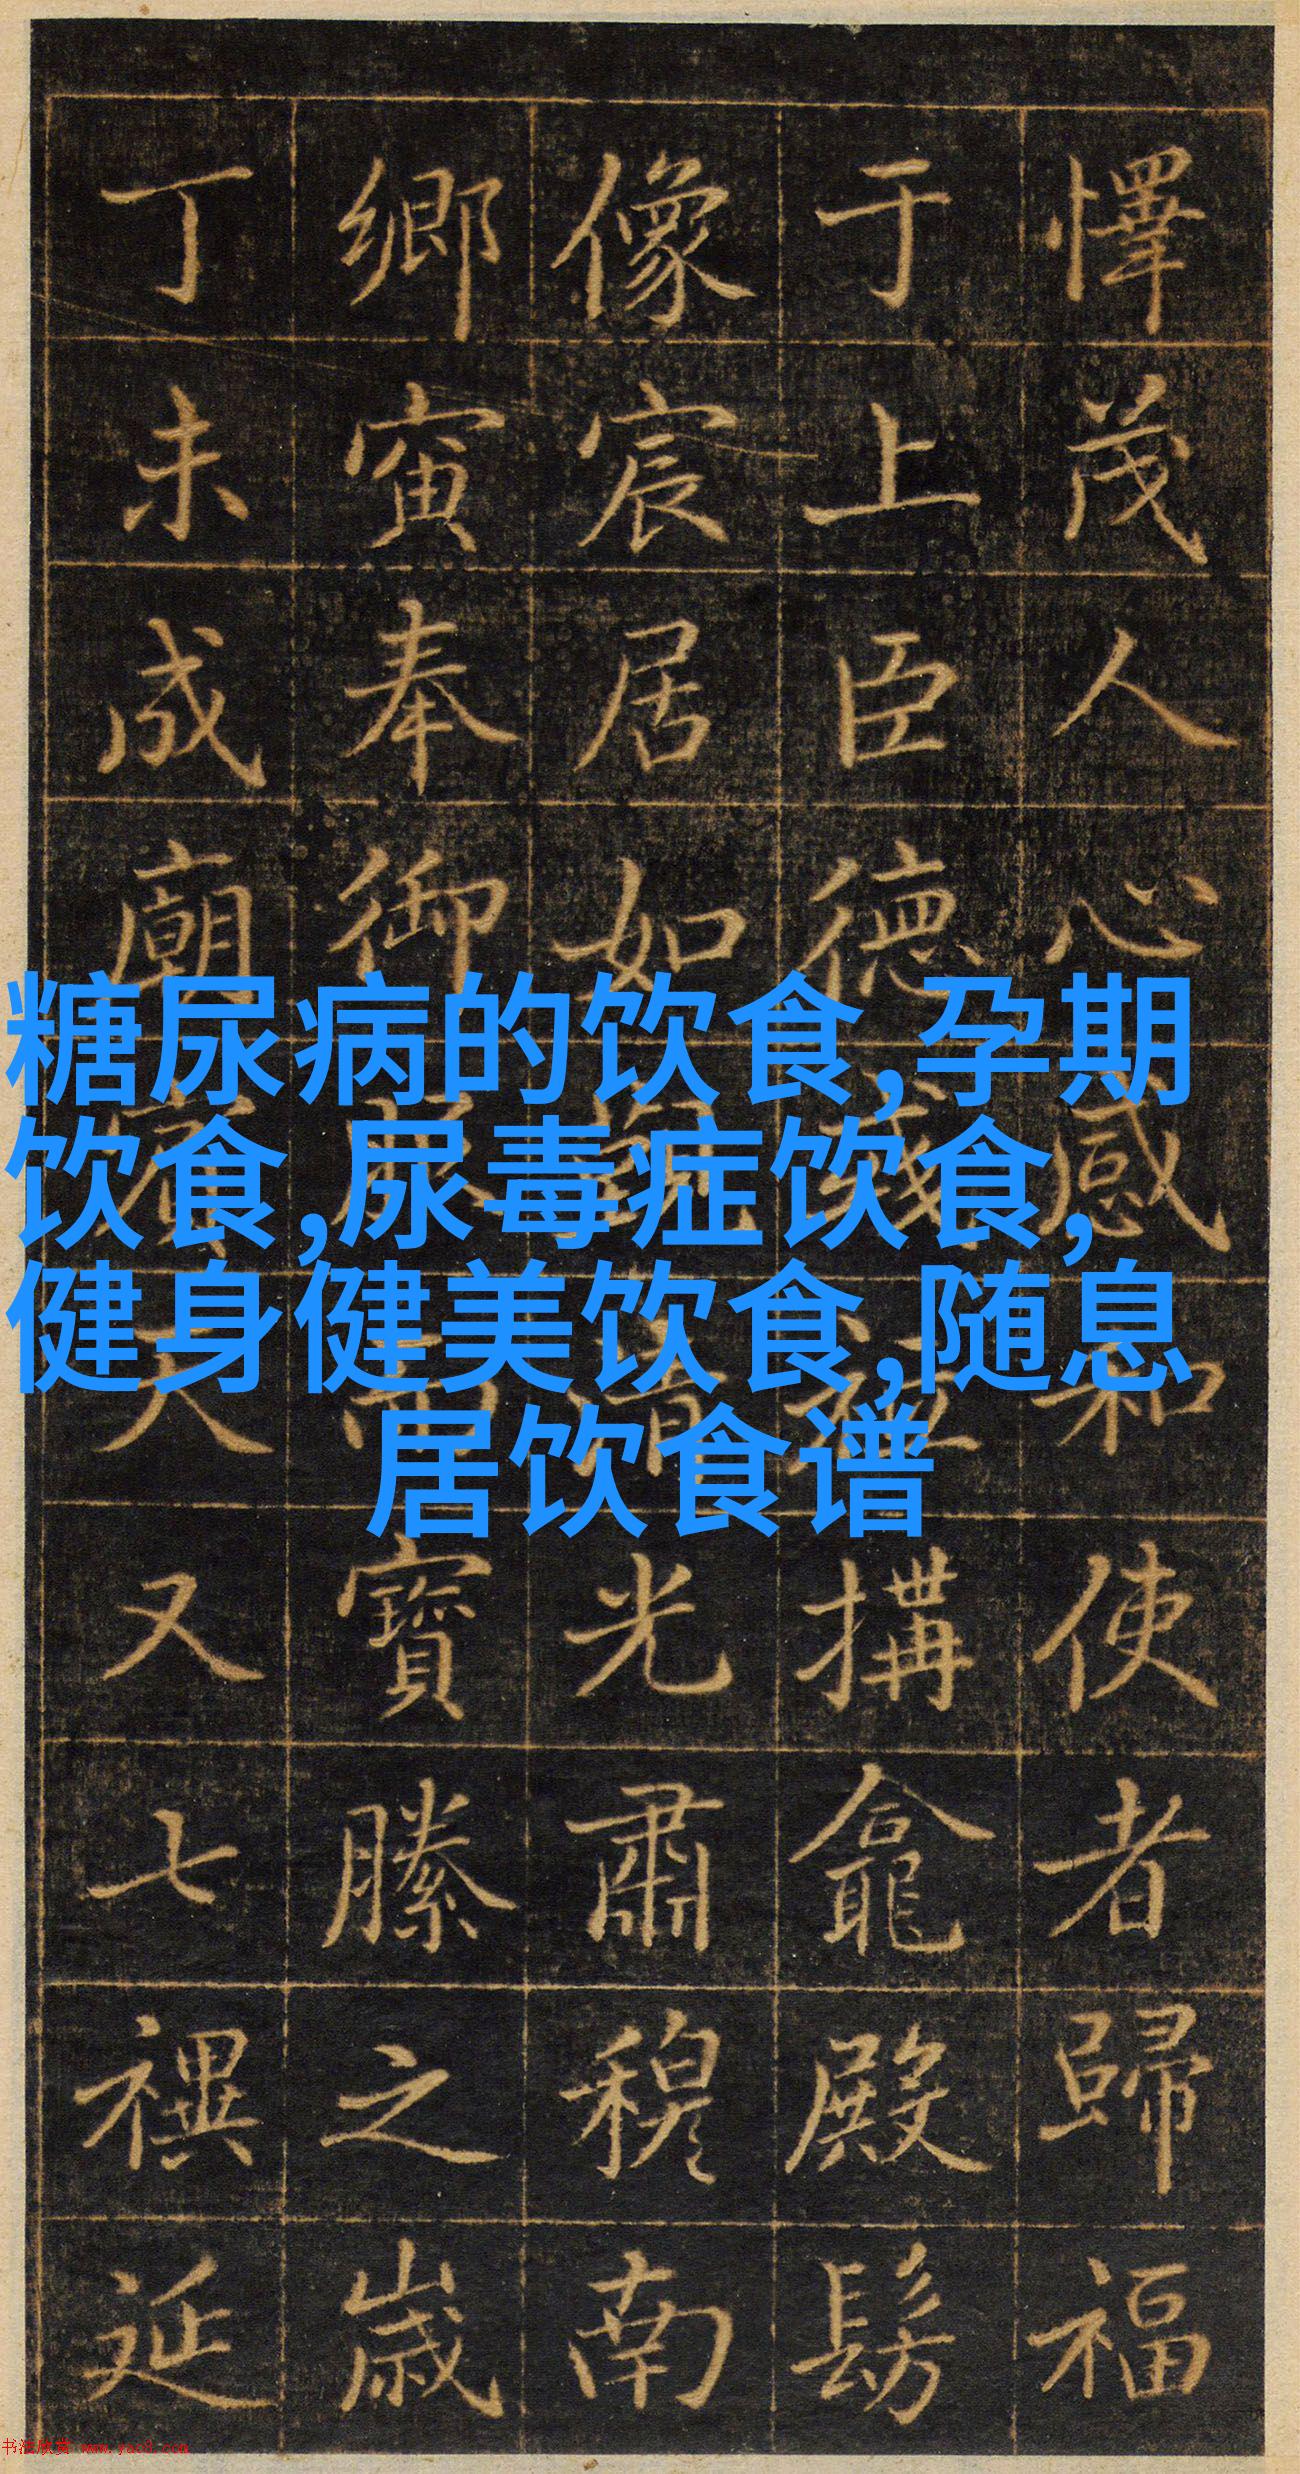 懌茂人心感和使者歸福
于上臣德搆龕殿髣
像宸居如光肅穆南
鄉寅奉御寶縢之歲
丁未成廟又七禩延
糖尿病的饮食,孕期
饮食,尿毒症饮食,
健身健美饮食,随息
居饮食谱
书法欣赏 www.yac8.com